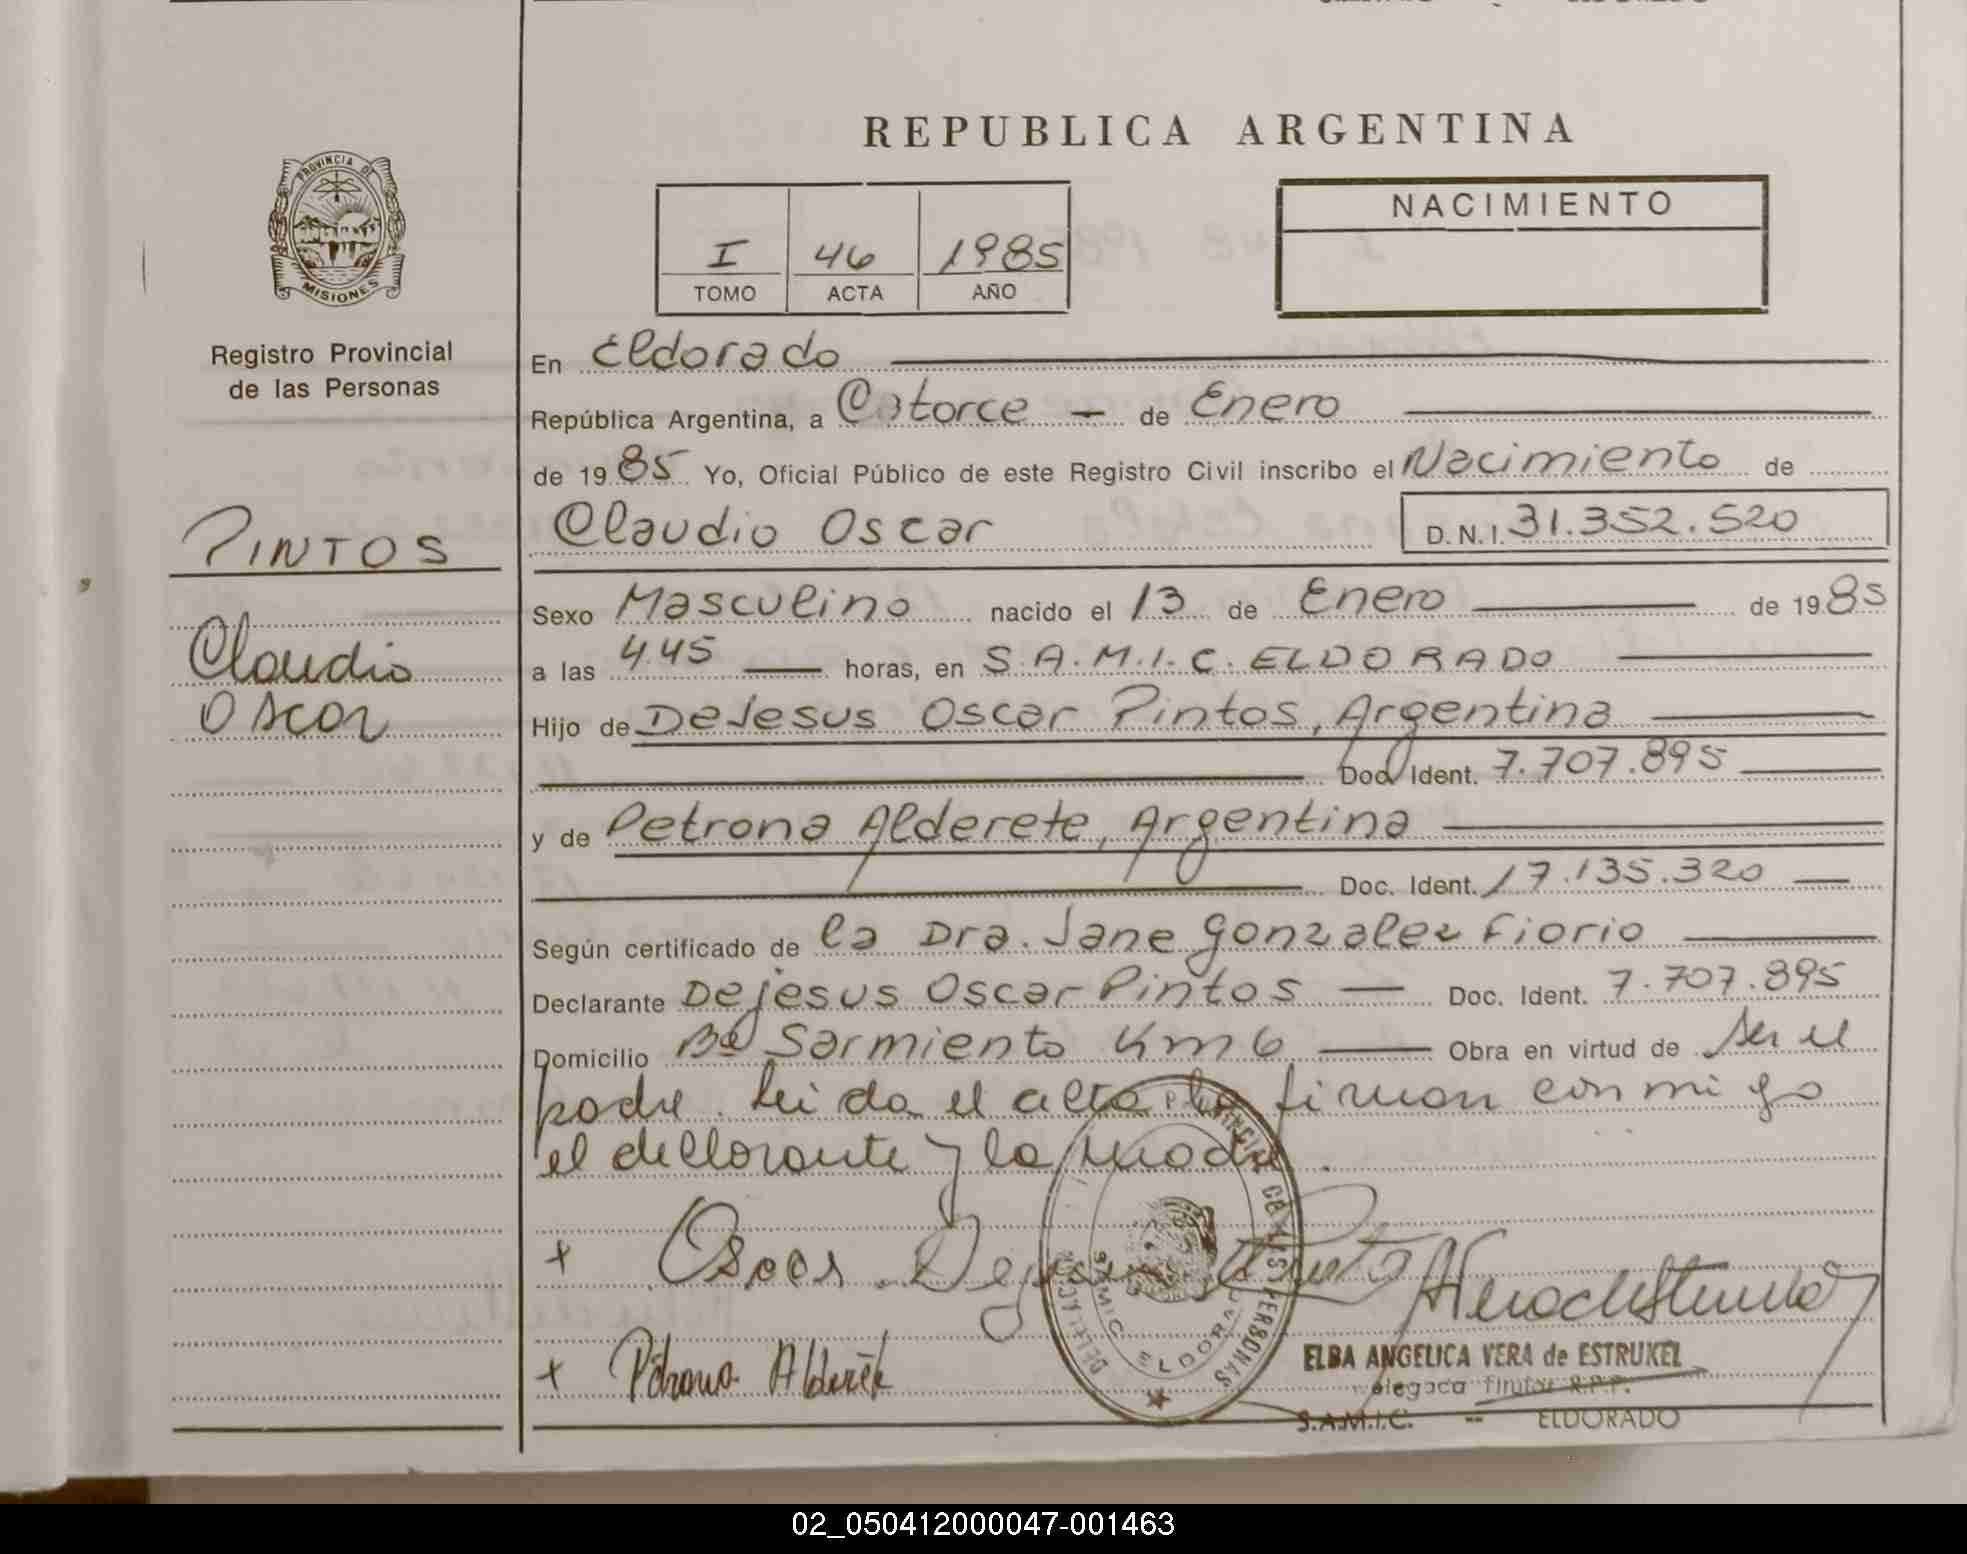 REPUBLICA ARGENTINA
PROVINCIA DE
MISIONES
Registro Provincial
de las Personas
I 46 1985
TOMO ACTA AÑO
NACIMIENTO
En Eldorado
República Argentina, a Catorce — de Enero
de 1985 Yo, Oficial Público de este Registro Civil inscribo el Nacimiento de
PINTOS
Claudio Oscar
D.N.I. 31.352.520
Claudio
Oscar
Sexo Masculino nacido el 13 de Enero de 1985
a las 4.45 horas, en S.A.M.I.C. ELDORADO
Hijo de DeJesus Oscar Pintos, Argentina
Doc. Ident. 7.707.895
y de Petrona Alderete, Argentina
Doc. Ident. 17.135.320
Según certificado de la Dra. Jane Gonzalez Fiorio
Declarante Dejesus Oscar Pintos — Doc. Ident. 7.707.895
Domicilio Bº Sarmiento Km 6 Obra en virtud de ser el
padre. Leida el acta la firman conmigo
el declarante y la madre.
+ Oscar Dejesus Pinto
+ Petrona Alderete
ELBA ANGELICA VERA de ESTRUKEL
S.A.M.I.C. -- ELDORADO
02_050412000047-001463